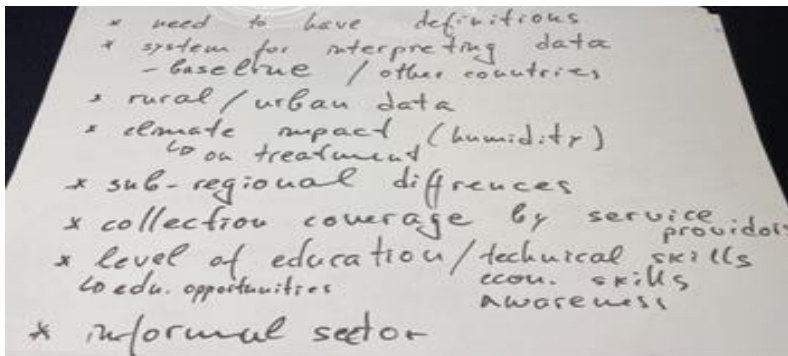 * need to have definitions
* system for interpreting data
- baseline / other countries
* rural / urban data
* climate impact (humidity)
↳ on treatment
* sub-regional diffrences
* collection coverage by service providors
* level of education / technical skills
↳ edu. opportunities econ. skills
awareness
* informal sector